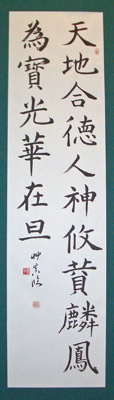 天地合德人神攸賛麟鳳
為寶光華在旦